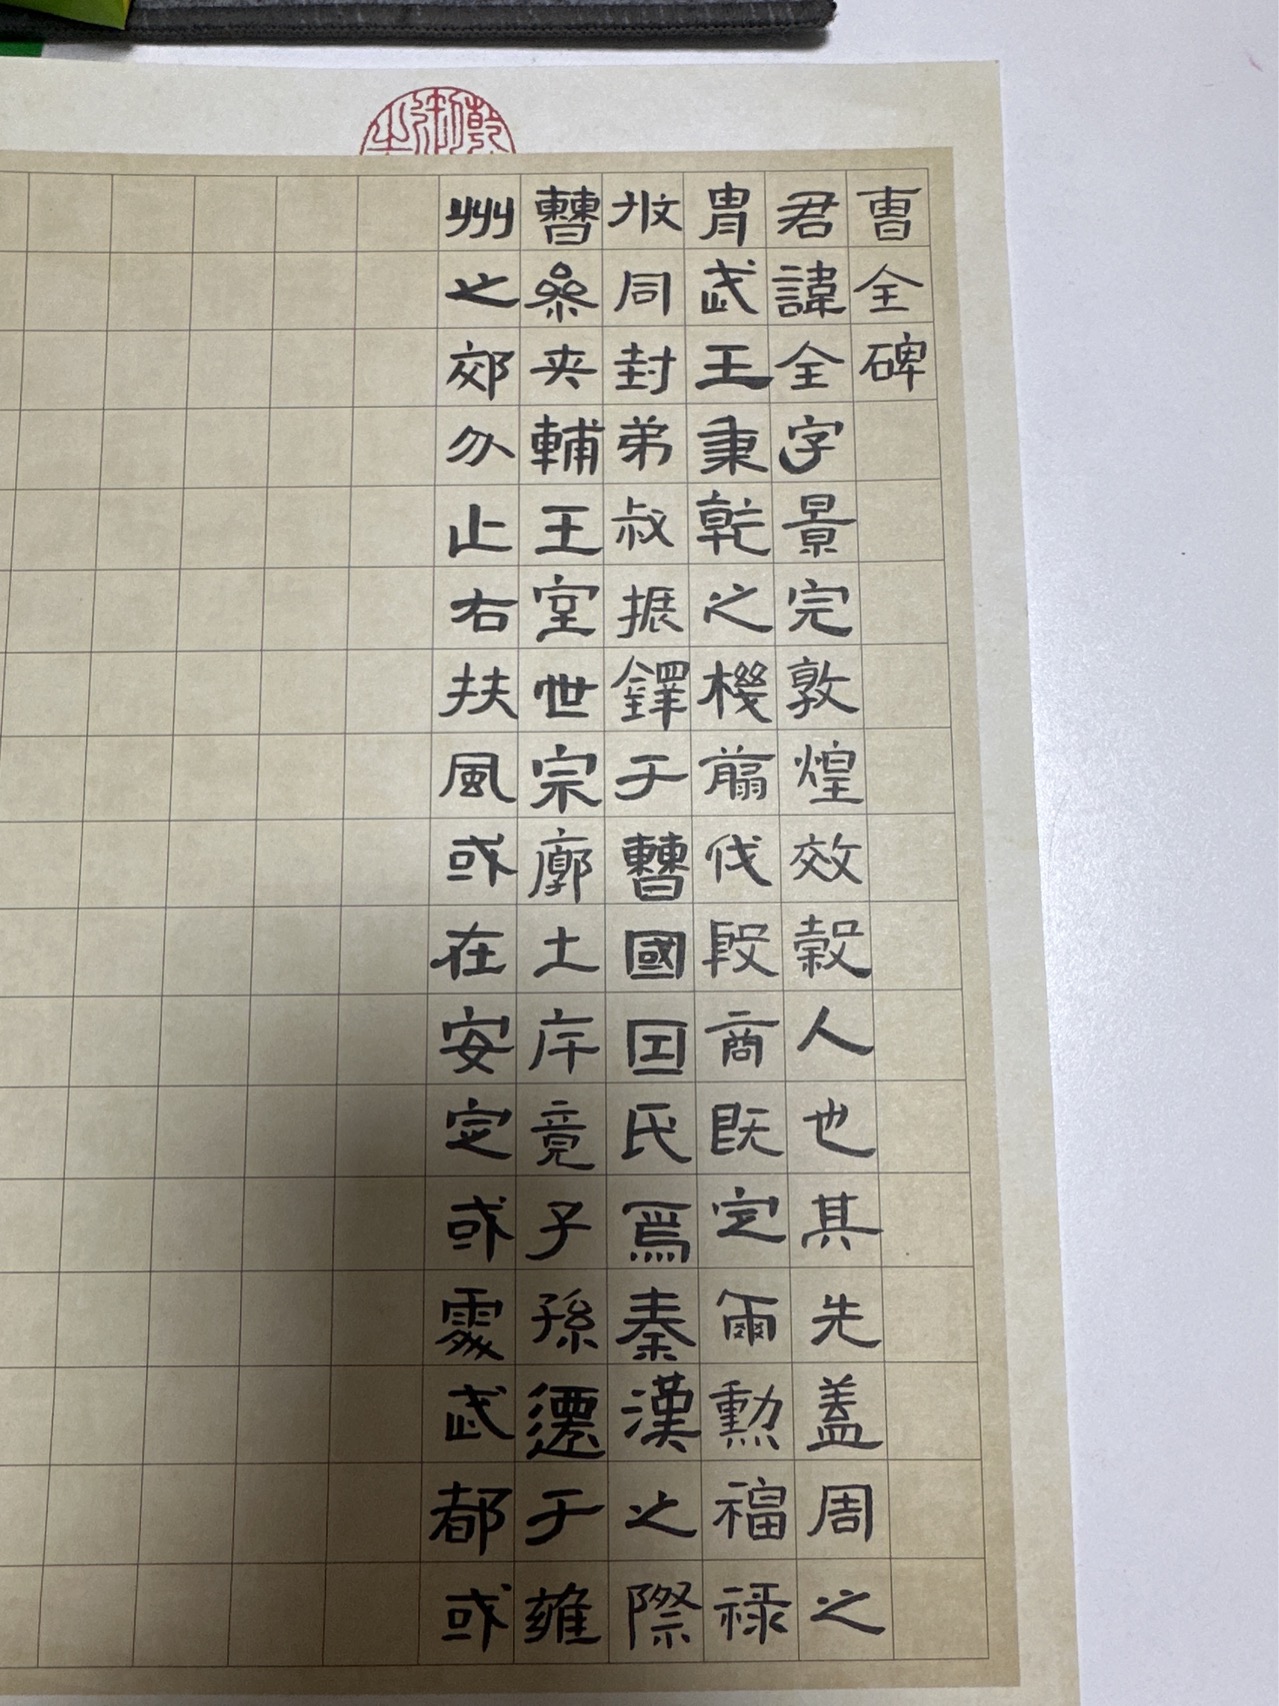 曹全碑
君諱全字景完敦煌效穀人也其先蓋周之
胄武王秉乾之機翦伐殷商既定爾勲福禄
攸同封弟叔振鐸于曹國囙氏焉秦漢之際
曹參夾輔王室世宗廓土斥竟子孫遷于雍
州之郊分止右扶風或在安定或處武都或